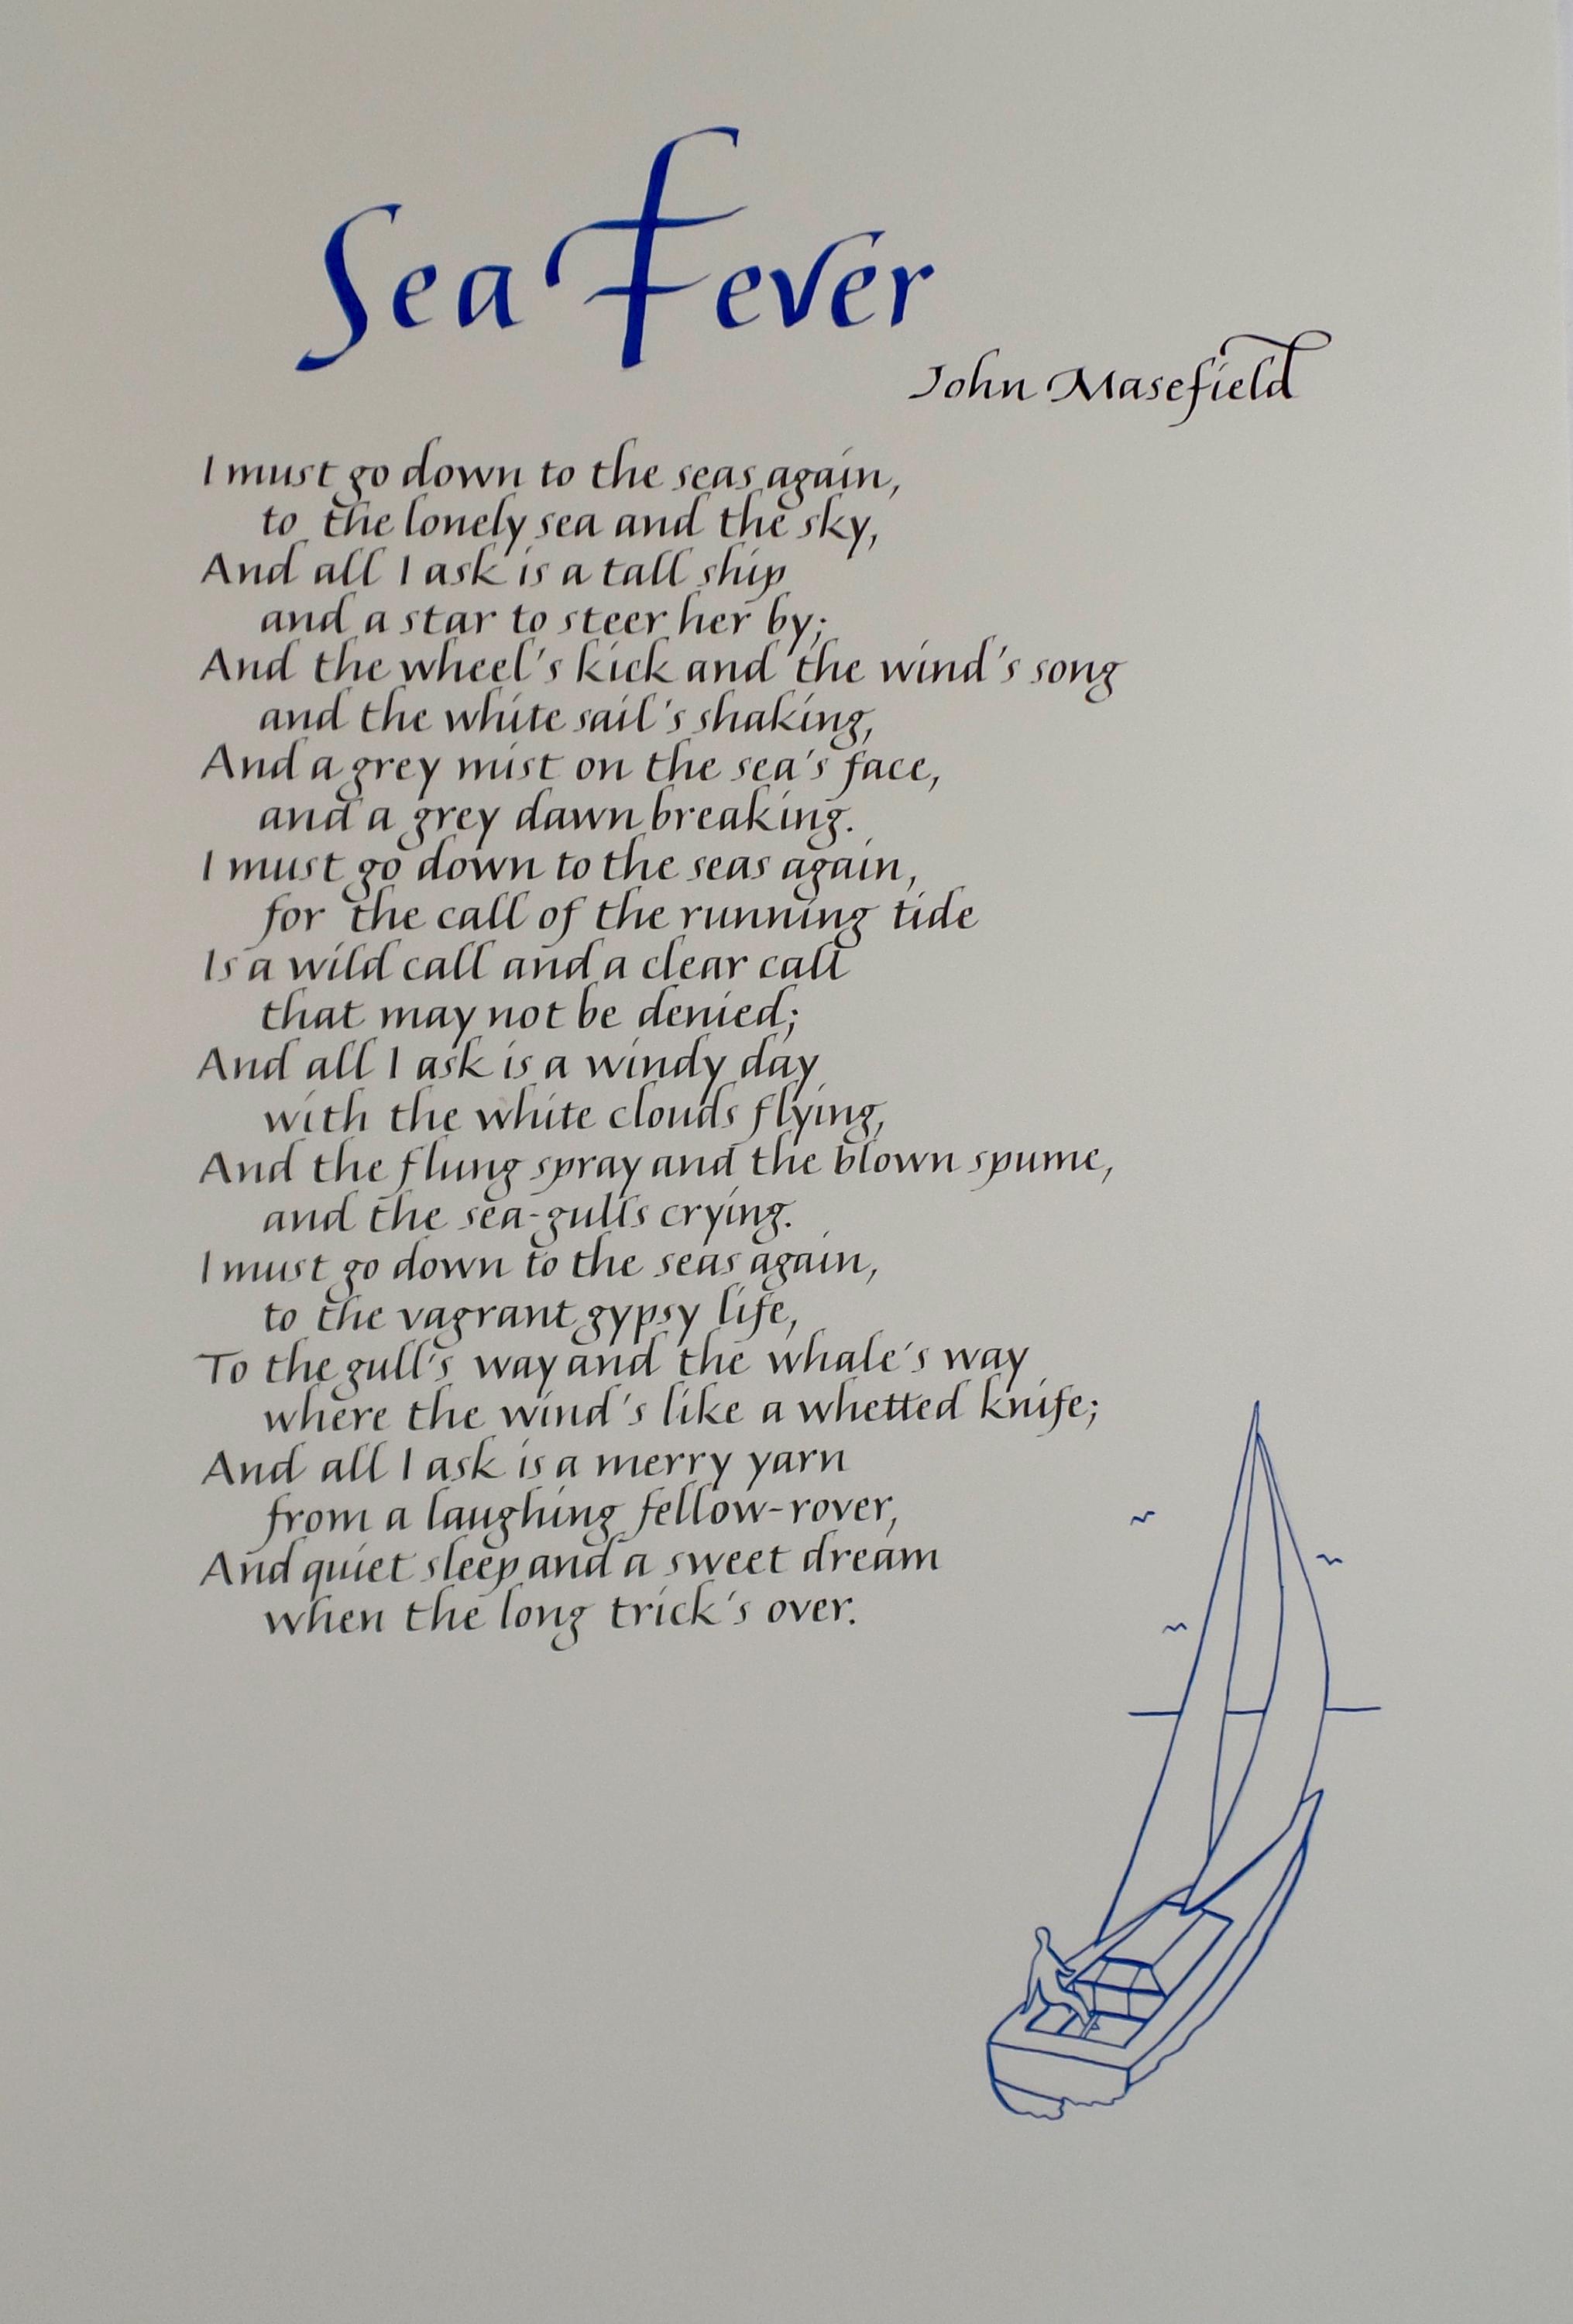 Sea Fever
John Masefield
I must go down to the seas again,
to the lonely sea and the sky,
And all I ask is a tall ship
and a star to steer her by;
And the wheel's kick and the wind's song
and the white sail's shaking,
And a grey mist on the sea's face,
and a grey dawn breaking.
I must go down to the seas again,
for the call of the running tide
Is a wild call and a clear call
that may not be denied;
And all I ask is a windy day
with the white clouds flying,
And the flung spray and the blown spume,
and the sea-gulls crying.
I must go down to the seas again,
to the vagrant gypsy life,
To the gull's way and the whale's way
where the wind's like a whetted knife;
And all I ask is a merry yarn
from a laughing fellow-rover,
And quiet sleep and a sweet dream
when the long trick's over.